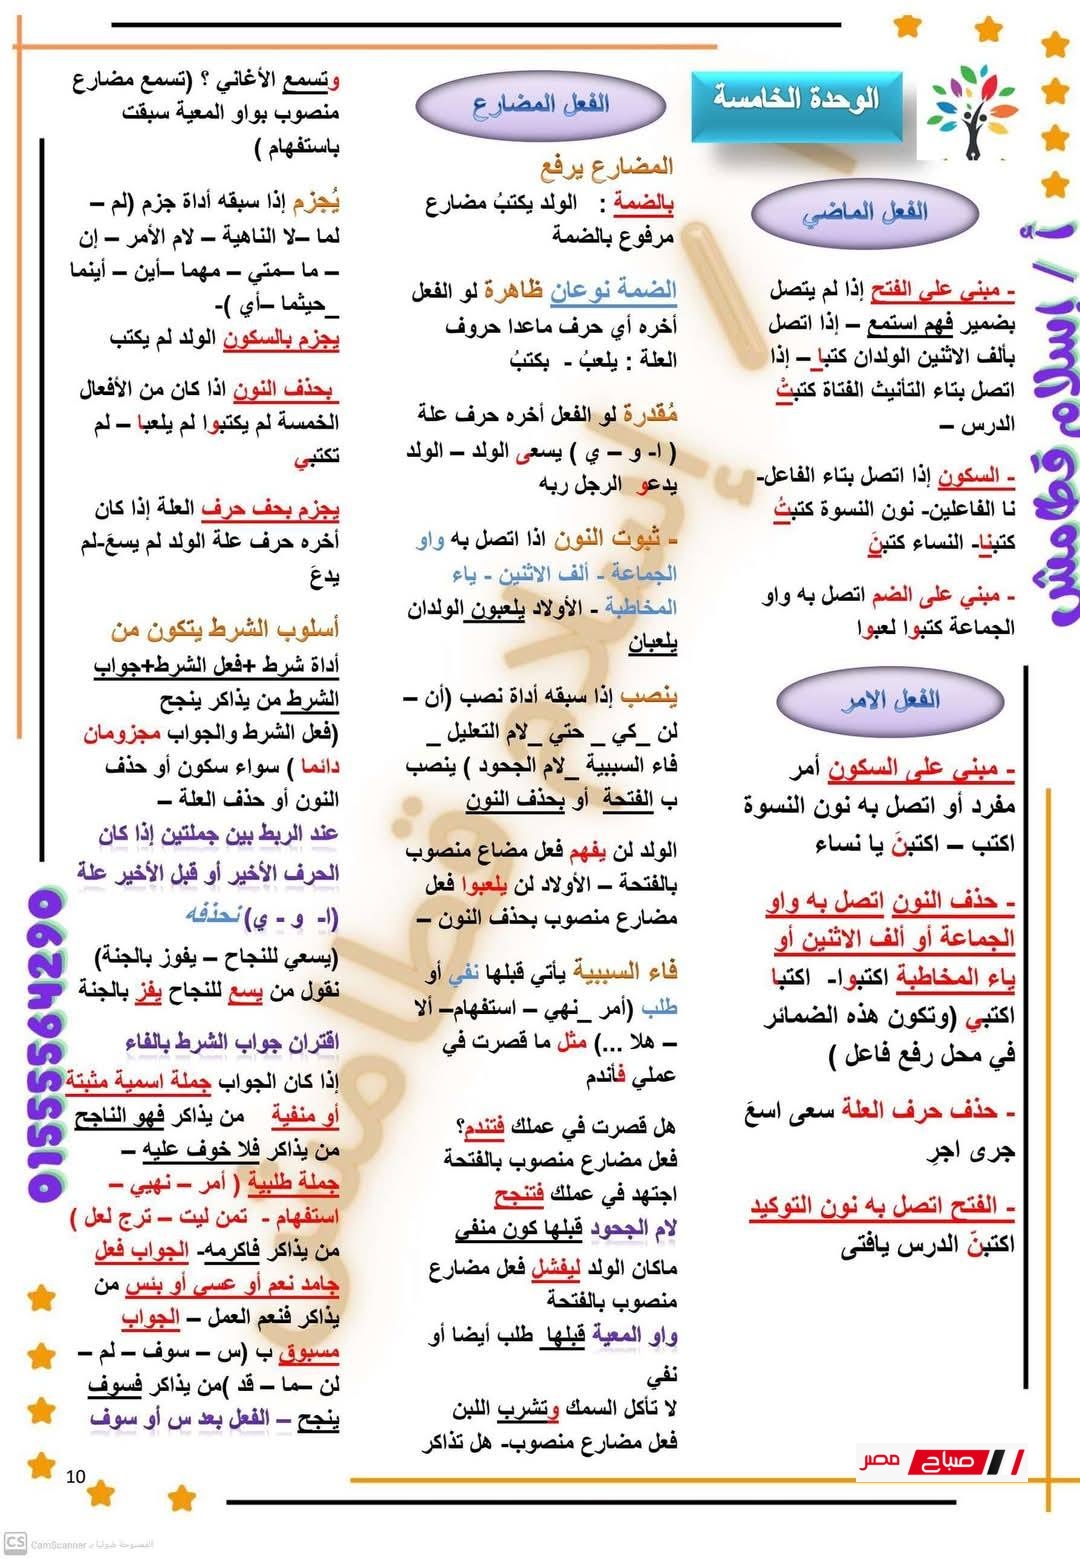 الوحدة الخامسة
الفعل الماضي
- مبني على الفتح إذا لم يتصل
بضمير فهم استمع – إذا اتصل
بألف الاثنين الولدان كتبا – إذا
اتصل بتاء التأنيث الفتاة كتبتْ
الدرس –
- السكون إذا اتصل بتاء الفاعل-
نا الفاعلين- نون النسوة كتبتُ
كتبنا- النساء كتبنَ
- مبني على الضم اتصل به واو
الجماعة كتبوا لعبوا
الفعل الامر
- مبني على السكون أمر
مفرد أو اتصل به نون النسوة
اكتب – اكتبنَ يا نساء
- حذف النون اتصل به واو
الجماعة أو ألف الاثنين أو
ياء المخاطبة اكتبوا- اكتبا
اكتبي (وتكون هذه الضمائر
في محل رفع فاعل )
- حذف حرف العلة سعى اسعَ
جرى اجرِ
- الفتح اتصل به نون التوكيد
اكتبنّ الدرس يافتى
الفعل المضارع
المضارع يرفع
بالضمة : الولد يكتبُ مضارع
مرفوع بالضمة
الضمة نوعان ظاهرة لو الفعل
أخره أي حرف ماعدا حروف
العلة : يلعبُ - يكتبُ
مُقدرة لو الفعل أخره حرف علة
( ا- و – ي ) يسعى الولد – الولد
يدعو الرجل ربه
- ثبوت النون اذا اتصل به واو
الجماعة - ألف الاثنين - ياء
المخاطبة - الأولاد يلعبون الولدان
يلعبان
ينصب إذا سبقه أداة نصب (أن –
لن _كي _ حتي _لام التعليل _
فاء السببية _لام الجحود ) ينصب
ب الفتحة أو بحذف النون
الولد لن يفهم فعل مضاع منصوب
بالفتحة – الأولاد لن يلعبوا فعل
مضارع منصوب بحذف النون –
فاء السببية يأتي قبلها نفي أو
طلب (أمر _نهي – استفهام– ألا
– هلا ...) مثل ما قصرت في
عملي فأندم
هل قصرت في عملك فتندم؟
فعل مضارع منصوب بالفتحة
اجتهد في عملك فتنجح
لام الجحود قبلها كون منفي
ماكان الولد ليفشل فعل مضارع
منصوب بالفتحة
واو المعية قبلها طلب أيضا أو
نفي
لا تأكل السمك وتشرب اللبن
فعل مضارع منصوب- هل تذاكر
وتسمع الأغاني ؟ (تسمع مضارع
منصوب بواو المعية سبقت
باستفهام )
يُجزم إذا سبقه أداة جزم (لم –
لما –لا الناهية – لام الأمر – إن
– ما –متي – مهما –أين – أينما
_حيثما –أي )-
يجزم بالسكون الولد لم يكتب
بحذف النون اذا كان من الأفعال
الخمسة لم يكتبوا لم يلعبا – لم
تكتبي
يجزم بحف حرف العلة إذا كان
أخره حرف علة الولد لم يسعَ-لم
يدعَ
أسلوب الشرط يتكون من
أداة شرط +فعل الشرط+جواب
الشرط من يذاكر ينجح
(فعل الشرط والجواب مجزومان
دائما ) سواء سكون أو حذف
النون أو حذف العلة –
عند الربط بين جملتين إذا كان
الحرف الأخير أو قبل الأخير علة
(ا- و - ي) نحذفه
(يسعي للنجاح – يفوز بالجنة)
نقول من يسع للنجاح يفز بالجنة
اقتران جواب الشرط بالفاء
إذا كان الجواب جملة اسمية مثبتة
أو منفية من يذاكر فهو الناجح
من يذاكر فلا خوف عليه –
جملة طلبية ( أمر – نهيي –
استفهام - تمن ليت – ترج لعل )
من يذاكر فاكرمه- الجواب فعل
جامد نعم أو عسي أو بئس من
يذاكر فنعم العمل – الجواب
مسبوق ب (س – سوف – لم –
لن –ما – قد )من يذاكر فسوف
ينجح – الفعل بعد س أو سوف
أ / إسلام قطامش
أ / إسلام قطامش
01555564290
صباح مصر
10
CS CamScanner الممسوحة ضوئيا بـ